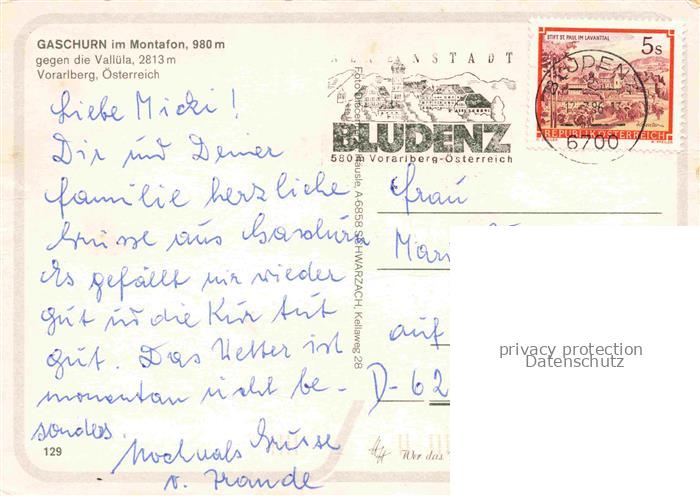 GASCHURN im Montafon, 980 m
gegen die Vallüla, 2813 m
Vorarlberg, Österreich
Liebe Micki!
Dir und Deiner
Familie herzliche
Grüsse aus Gaschurn
Es gefällt mir wieder
gut und die Kur tut
gut. Das Wetter ist
momentan nicht be-
sonders.
Nochmals Grüsse
v.
129
ALPENSTADT
BLUDENZ
580 m Vorarlberg-Österreich
STIFT ST. PAUL IM LAVANTTAL
5s
REPUBLIK ÖSTERREICH
BLUDENZ
6700
A-6858 SCHWARZACH, Kellaweg 28
Frau
auf
D-62
privacy protection
Datenschutz